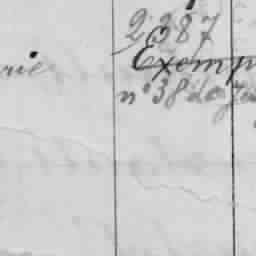 2387
rie Exemp
n° 38 de